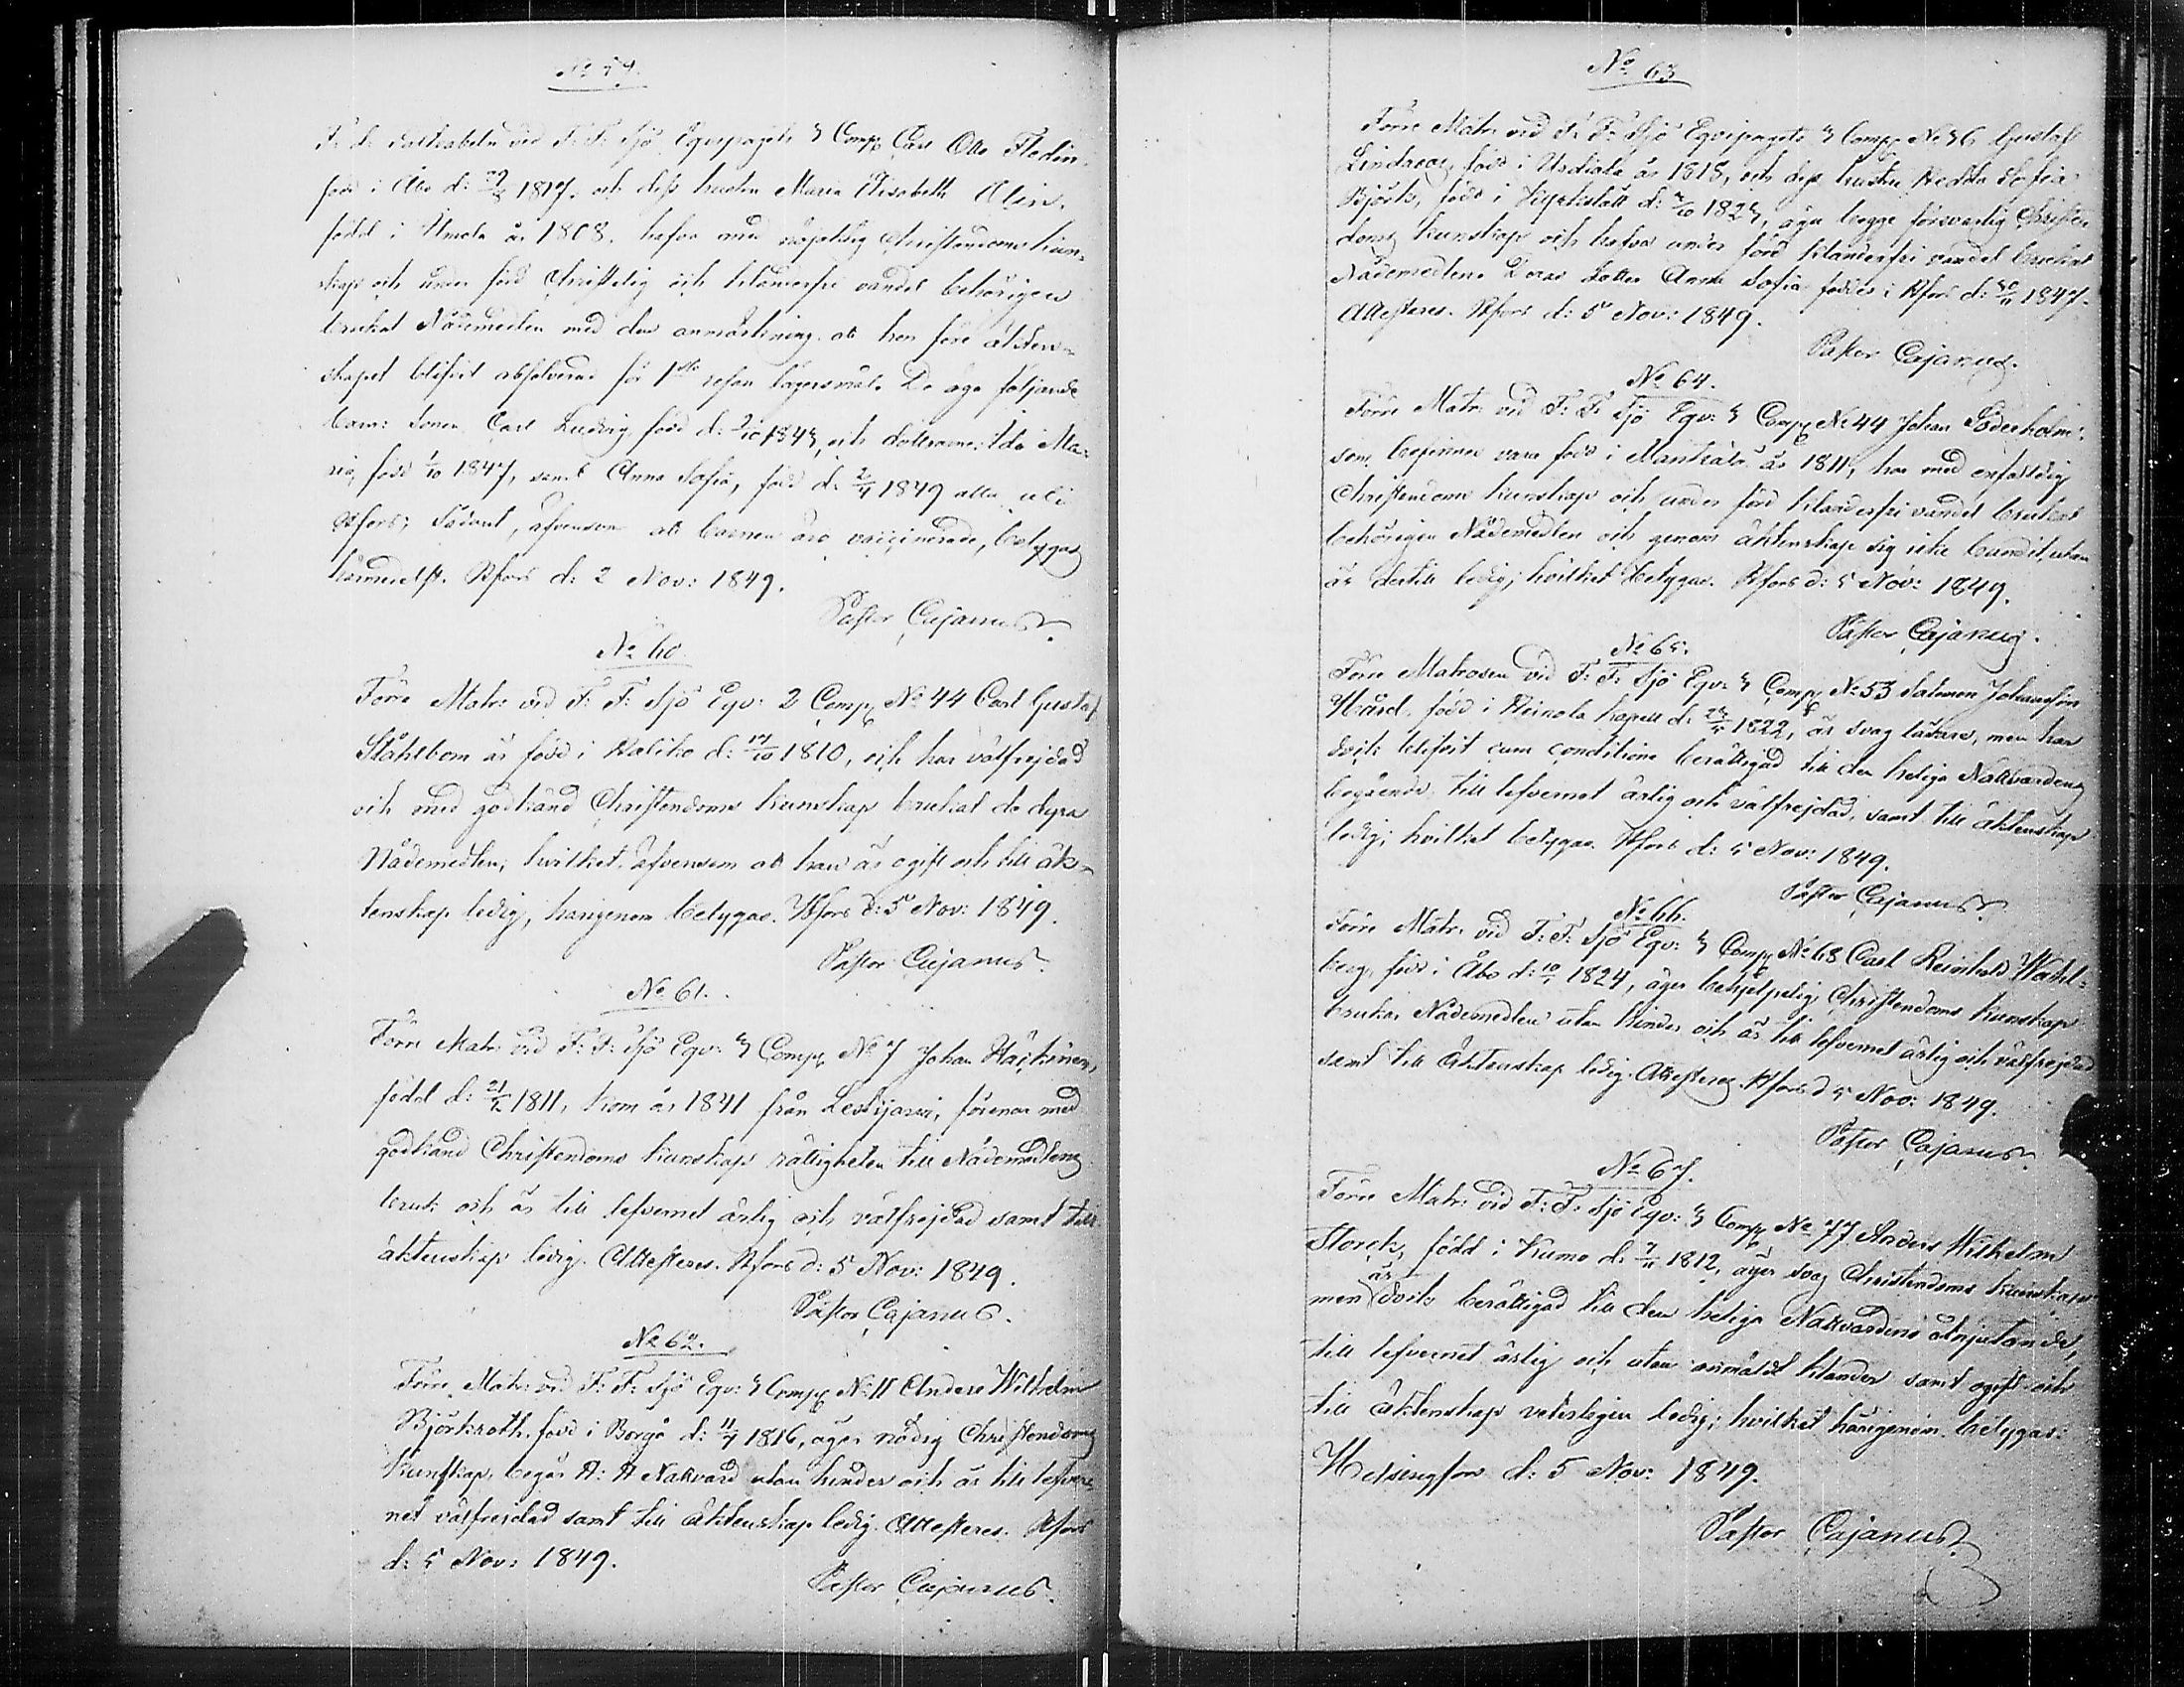 No 59.
F. d. vid F: F: Sjö Equipagets 3 Comp Carl Otto Flodin
född i Åbo d: 29/8 1817, och dess hustru Maria Elisabeth Alin,
född i Umola år 1808, hafva med nöjaktig Christendoms kun-
skap och under förd Christelig och klanderfri vandel behörigen
brukat Nådemedlen med den anmärkning att hon före äkten-
skapet blifvit absolverad för 1sta resan lägersmål. De äga följande
barn: Sonen Carl Ludvig född d: 2/10 1843, och döttrarne: Ida Ma-
ria, född 1/10 1847, samt Anna Sofia, född d: 2/4 1849 alla uti
Hfors; Sådant, äfvensom att barnen äro vaccinerade, betygas
hämmedelst. Hfors d: 2 Nov: 1849.
Pastor Cajanus.
No 60.
Förre Matr: vid F: F: Sjö Eqv: 2 Comp No 44 Carl Gustaf
Ståhlbom är född i Haliko d: 17/10 1810, och har välfrejdad
och med godkänd Christendoms kunskap brukat de dyra
Nådemedlen; hvilket, äfvensom att han är ogift och till äk-
tenskap ledig, härigenom betygas. Hfors d: 5 Nov: 1849.
Pastor Cajanus.
No 61.
Förre Matr: vid F: F: Sjö Eqv: 3 Comp No 7 Johan Häikinen,
född d: 21/2 1811, kom år 1841 från Lestijärvi, förenar med
godkänd Christendoms kunskap rättigheten till Nådemedlens
bruk och är till lefvernet ärlig och välfrejdad samt till
äktenskap ledig. Attesteres. Hfors d: 5 Nov: 1849.
Pastor Cajanus.
No 62.
Förre Matr: vid F: F: Sjö Eqv: 3 Comp No 11 Anders Wilhelm
Björkroth, född i Borgå d: 11/7 1816, äger nödig Christendoms
kunskap, begår H: H Nattvard utan hinder och är till lefver-
net välfrejdad samt till äktenskap ledig. Attesteres. Hfors
d: 5 Nov: 1849.
Pastor Cajanus.
No 63
Förre Matr: vid F: F: Sjö Eqvipagets 3 Comp No 36 Gustaf
Lindroos, född i Urdiala år 1818, och dess hustru Hedda Sofia
Björk, född i Kyrkslätt d: 4/10 1823, äga begge försvarlig Christen-
doms kunskap och hafva under förd klanderfri vandel brukat
Nådemedlen. Deras dotter Anna Sofia föddes i Hfors d: 30/11 1847.
Attesteres. Hfors d: 5 Nov: 1849.
Pastor Cajanus.
No 64.
Förre Matr: vid F: F: Sjö Eqv: 3 Comp No 44 Johan Söderholm,
som befinnes vara född i Mäntsälä år 1811, har med enfaldig
Christendoms kunskap och under förd klanderfri vandel brukat
behörigen Nådemedlen och genom äktenskap sig icke bundit, utan
är dertill ledig; hvilket betygas. Hfors d: 5 Nov: 1849.
Pastor Cajanus.
No 65.
Förre Matrosen vid F: F: Sjö Eqv: 3 Comp No 53 Salomon Johansson
Hård, född i Heinola kapell d: 28/5 1822, är svag läsare, men har
dock blifvit cum conditione berättigad till den heliga Nattvardens
begående, till lefvernet ärlig och välfrejdad, samt till äktenskap
ledig; hvilket betygas. Hfors d: 5 Nov: 1849.
Pastor Cajanus.
No 66.
Förre Matr: vid F: F: Sjö Eqv: 3 Comp No 68 Carl Reinhold Wahl-
berg, född i Åbo d: 1824, äger behjelpelig Christendoms kunskap
brukar Nådemedlen utan hinder och är till lefvernet ärlig och välfrejdad
samt till äktenskap ledig. Attesteres. Hfors d 5 Nov: 1849.
Pastor Cajanus.
No 67.
Förre Matr: vid F: F: Sjö Eqv: 3 Comp No 77 Anders Wilhelm
Storck, född i Kumo d: 7/11 1812, äger svag Christendoms kunskap
men är dock berättigad till den heliga Nattvardens åtnjutande,
till lefvernet ärlig och utan anmäldt klander samt ogift och
till äktenskap veterligen ledig; hvilket härigenom betygas:
Helsingfors d: 5 Nov: 1849.
Pastor Cajanus.